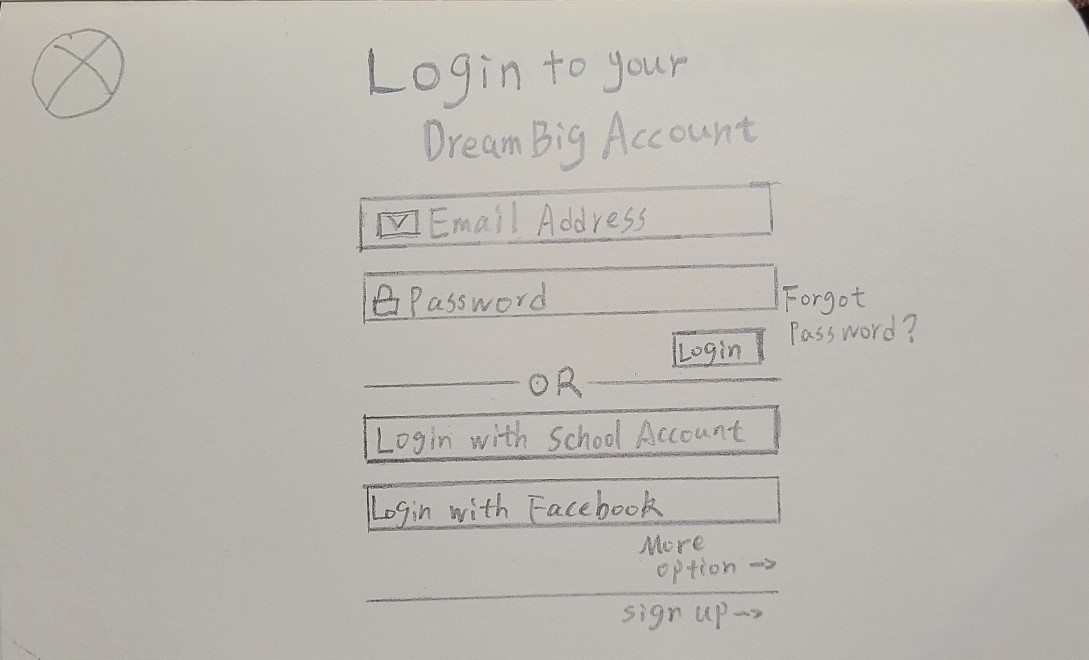 Login to your
DreamBig Account
Email Address
Password
Forgot
Password?
Login
OR
Login with School Account
Login with Facebook
More
option →
sign up →